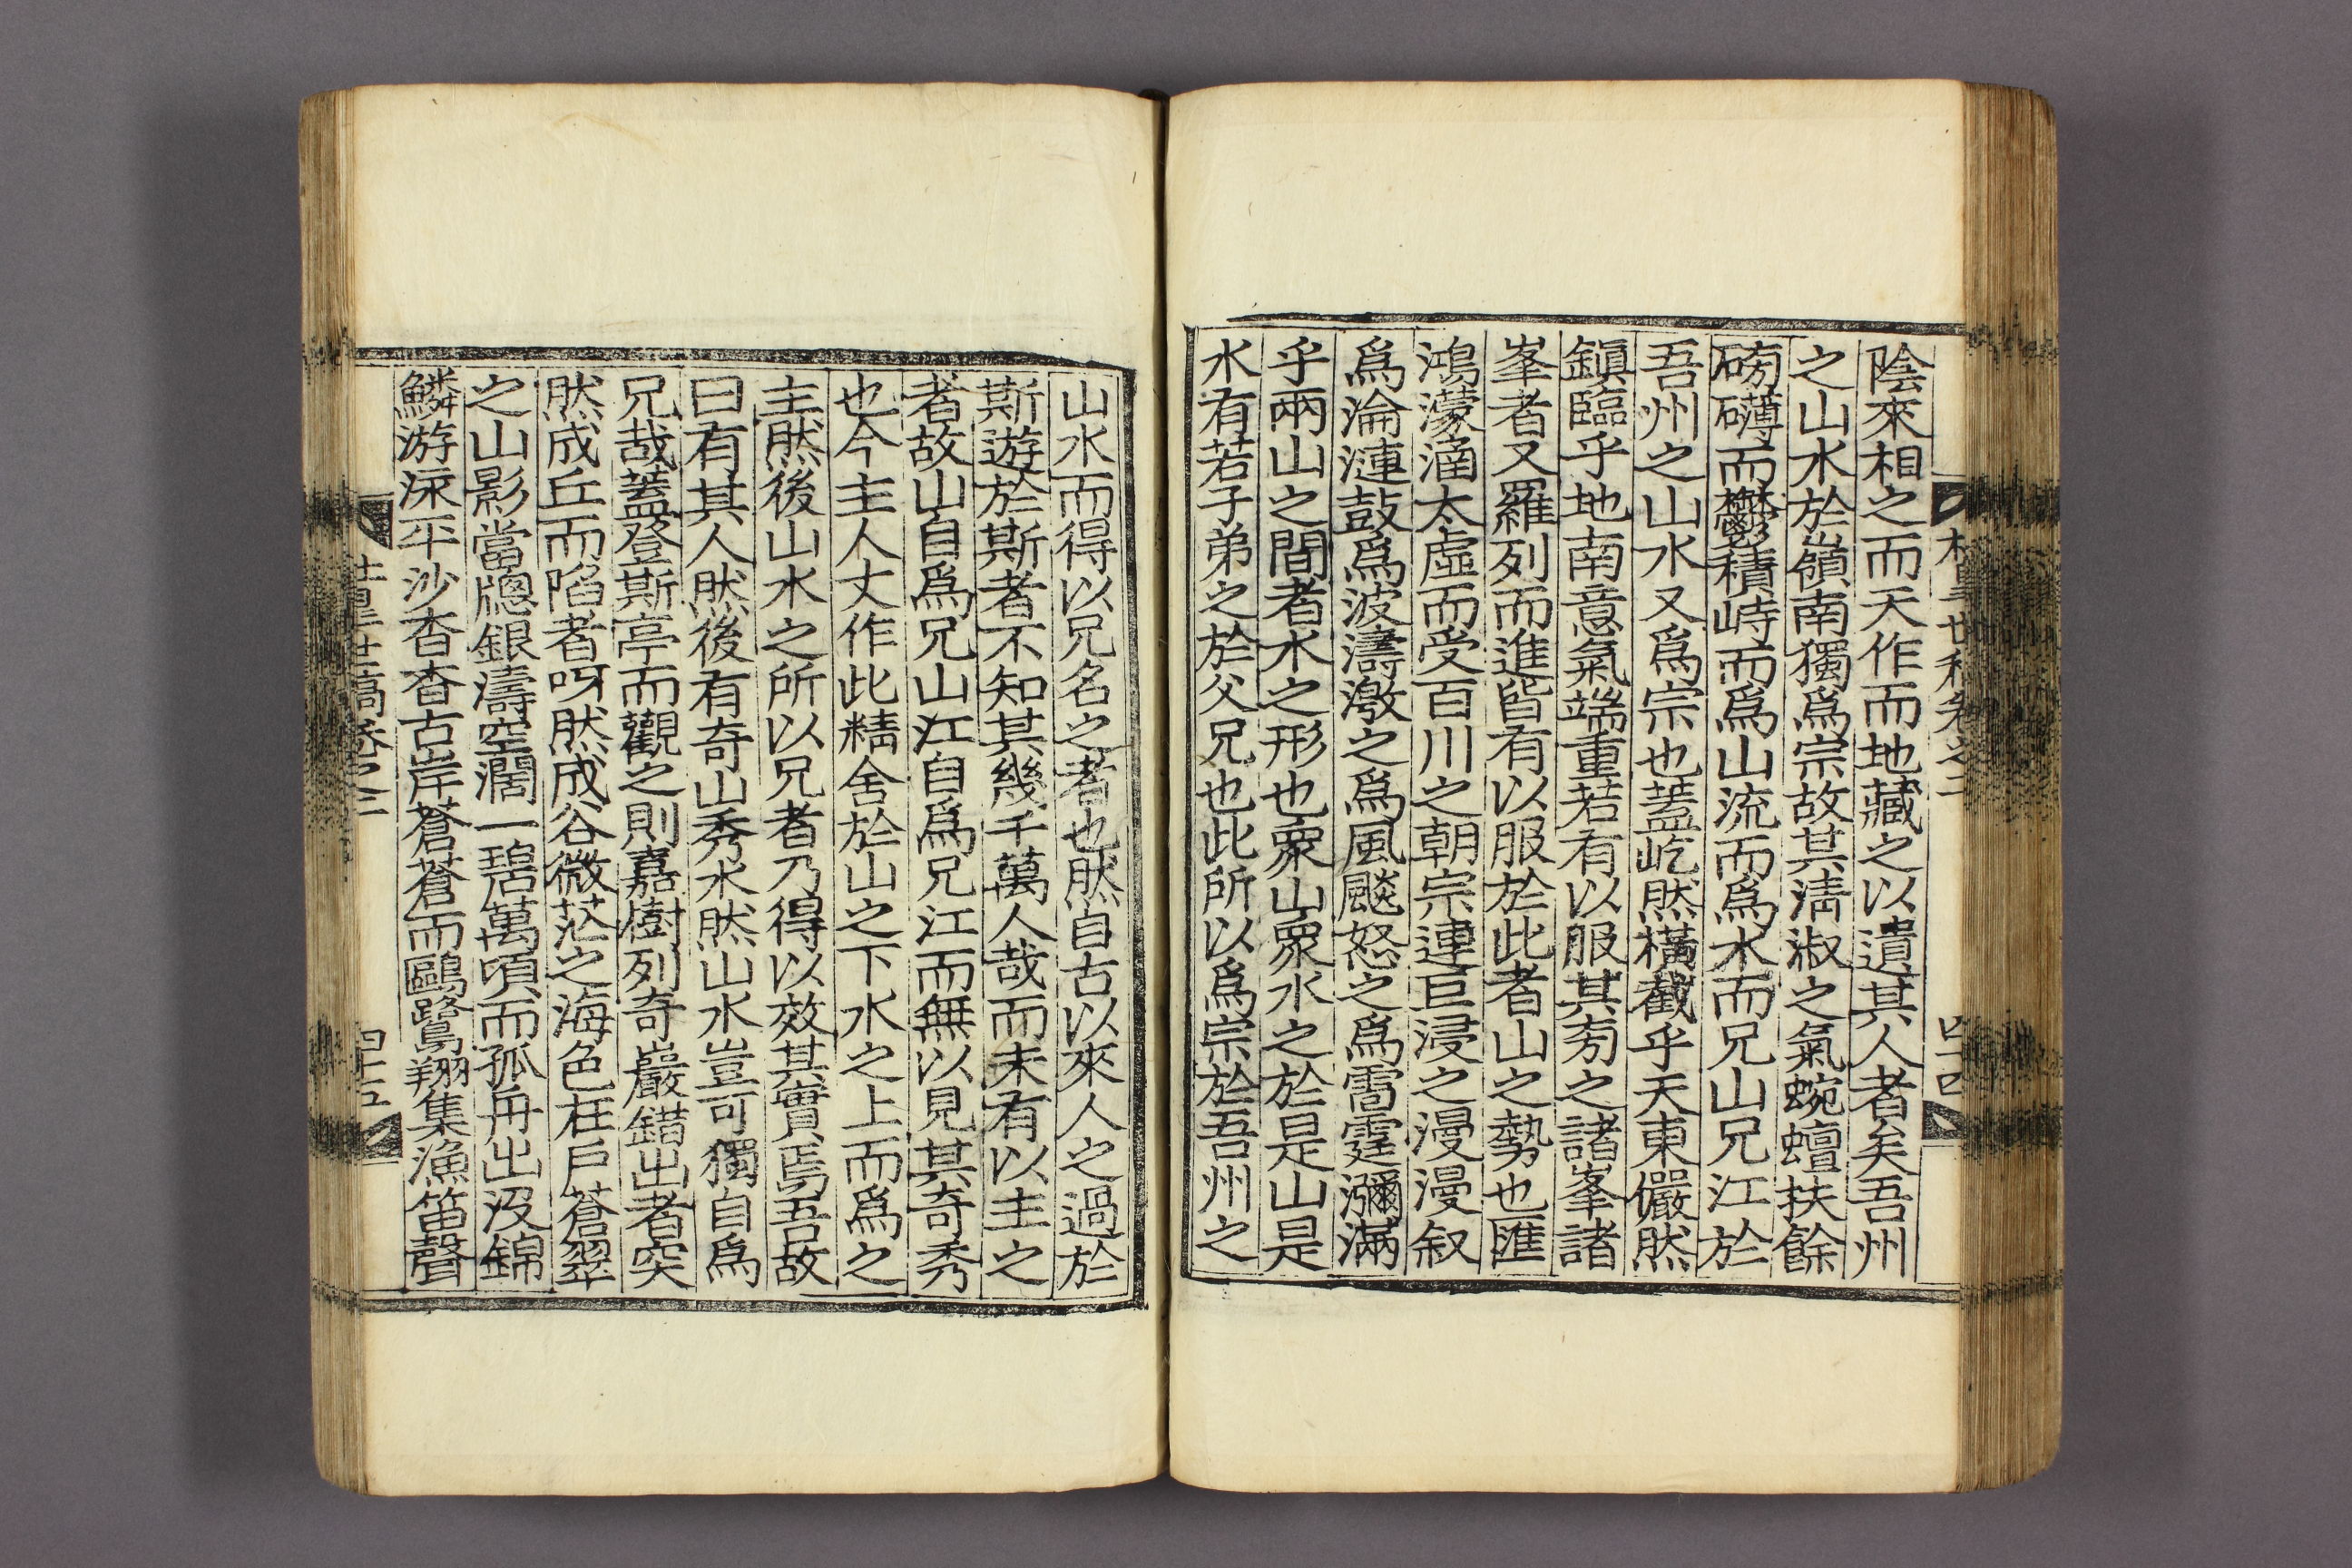 陰來相之而天作而地藏之以遺其人者矣吾州
之山水於嶺南獨爲宗故其淸淑之氣蜿蟺扶餘
磅礴而鬱積峙而爲山流而爲水而兄山兄江於
吾州之山水又爲宗也蓋屹然橫截乎天東儼然
鎭臨乎地南意氣端重若有以服其旁之諸峯諸
峯者又羅列而進皆有以服於此者山之勢也匯
鴻濛滀太虛而受百川之朝宗連巨浸之漫漫叙
爲淪漣鼓爲波濤激之爲風飈怒之爲雷霆瀰滿
乎兩山之間者水之形也衆山衆水之於是山是
水有若子弟之於父兄也此所以爲宗於吾州之
山水而得以兄名之者也然自古以來人之過於
斯遊於斯者不知其幾千萬人哉而未有以主之
者故山自爲兄山江自爲兄江而無以見其奇秀
也今主人丈作此精舍於山之下水之上而爲之
主然後山水之所以兄者乃得以效其實焉吾故
曰有其人然後有奇山秀水然山水豈可獨自爲
兄哉蓋登斯亭而觀之則嘉樹列奇巖錯出者突
然成丘而陷者呀然成谷微茫之海色在戶蒼翠
之山影當牕銀濤空濶一碧萬頃而孤舟出沒錦
鱗游泳平沙杳杳古岸蒼蒼而鷗鷺翔集漁笛聲
世稿卷之二
四十四
世稿卷之二
四十五